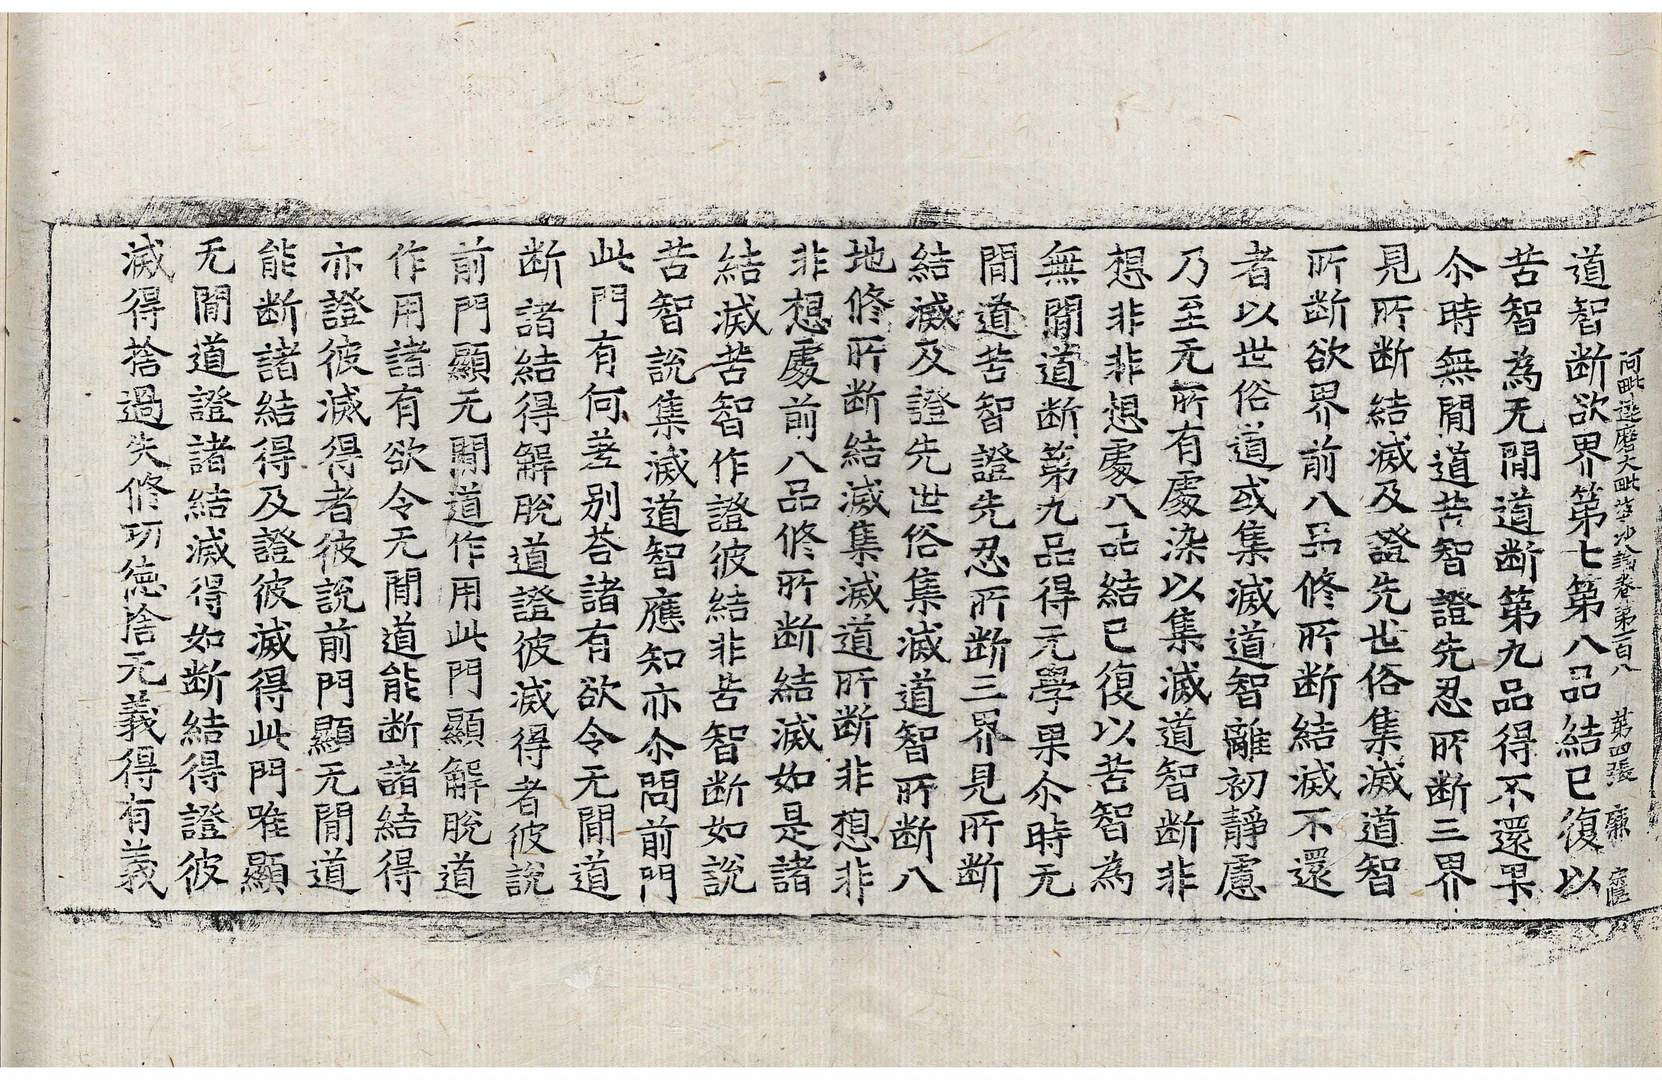 阿毗達磨大毗婆沙論卷第一百八 第四張 廉
道智断欲界第七第八品結已復以
苦智為无閒道断第九品得不還果
尒時無閒道苦智證先忍所断三界
見所断結滅及證先世俗集滅道智
所断欲界前八品修所断結滅不還
者以世俗道或集滅道智離初静慮
乃至无所有處染以集滅道智断非
想非非想處八品結已復以苦智為
無閒道断第九品得无學果尒時无
閒道苦智證先忍所断三界見所断
結滅及證先世俗集滅道智所断八
地修所断結滅集滅道所断非想非
非想處前八品修所断結滅如是諸
結滅苦智作證彼結非苦智断如說
苦智說集滅道智應知亦尒問前門
此門有何差别荅諸有欲令无閒道
断諸結得解脫道證彼滅得者彼說
前門顯无閒道作用此門顯解脫道
作用諸有欲令无閒道能断諸結得
亦證彼滅得者彼說前門顯无閒道
能断諸結得及證彼滅得此門唯顯
无閒道證諸結滅得如断結得證彼
滅得捨過失修功徳捨无義得有義